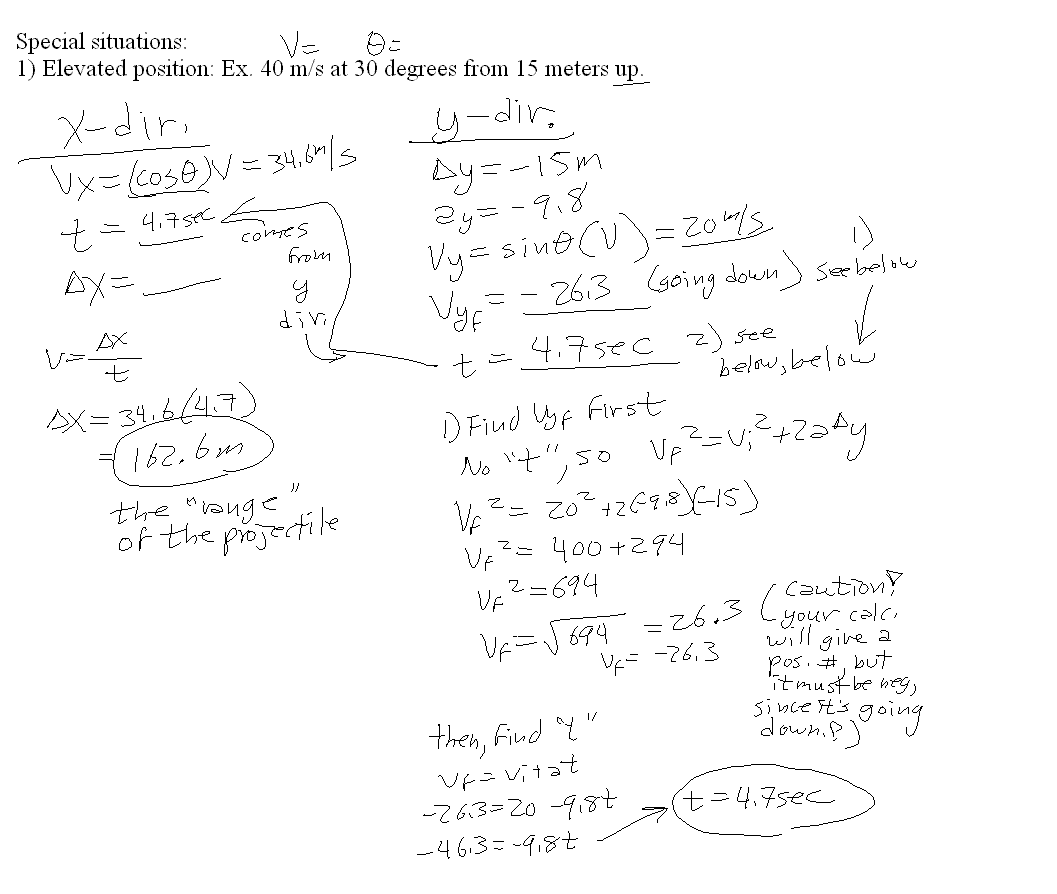 Special situations:
V= θ=
1) Elevated position: Ex. 40 m/s at 30 degrees from 15 meters up.
x-dir.
Vx=(cosθ)V = 34.6m/s
t = 4.7sec
comes
from
y
dir.
Δx=
V= Δx/t
Δx= 34.6(4.7)
= 162.6m
the "range"
of the projectile
y-dir.
Δy=-15m
ay=-9.8
Vy= sinθ(V) = 20m/s
Vyf = -26.3 (going down) 1) see below
t = 4.7sec 2) see
below, below
1) Find Vyf first
No "t", so Vf²=Vi²+2aΔy
Vf²= 20²+2(-9.8)(-15)
Vf²= 400+294
Vf²=694
Vf=√694 =26.3
Vf= -26.3
(caution!
your calc.
will give a
pos. #, but
it must be neg,
since it's going
down!)
then, find "t"
Vf=Vi+at
-26.3=20-9.8t
-46.3=-9.8t
t=4.7sec